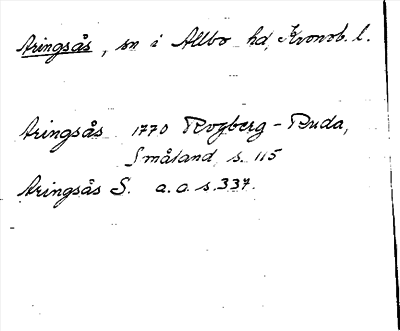 Aringsås, sn i Allbo hd, Kronob. l.
Aringsås 1770 Rogberg-Ruda,
Småland s. 115
Aringsås S. a.a. s. 337.